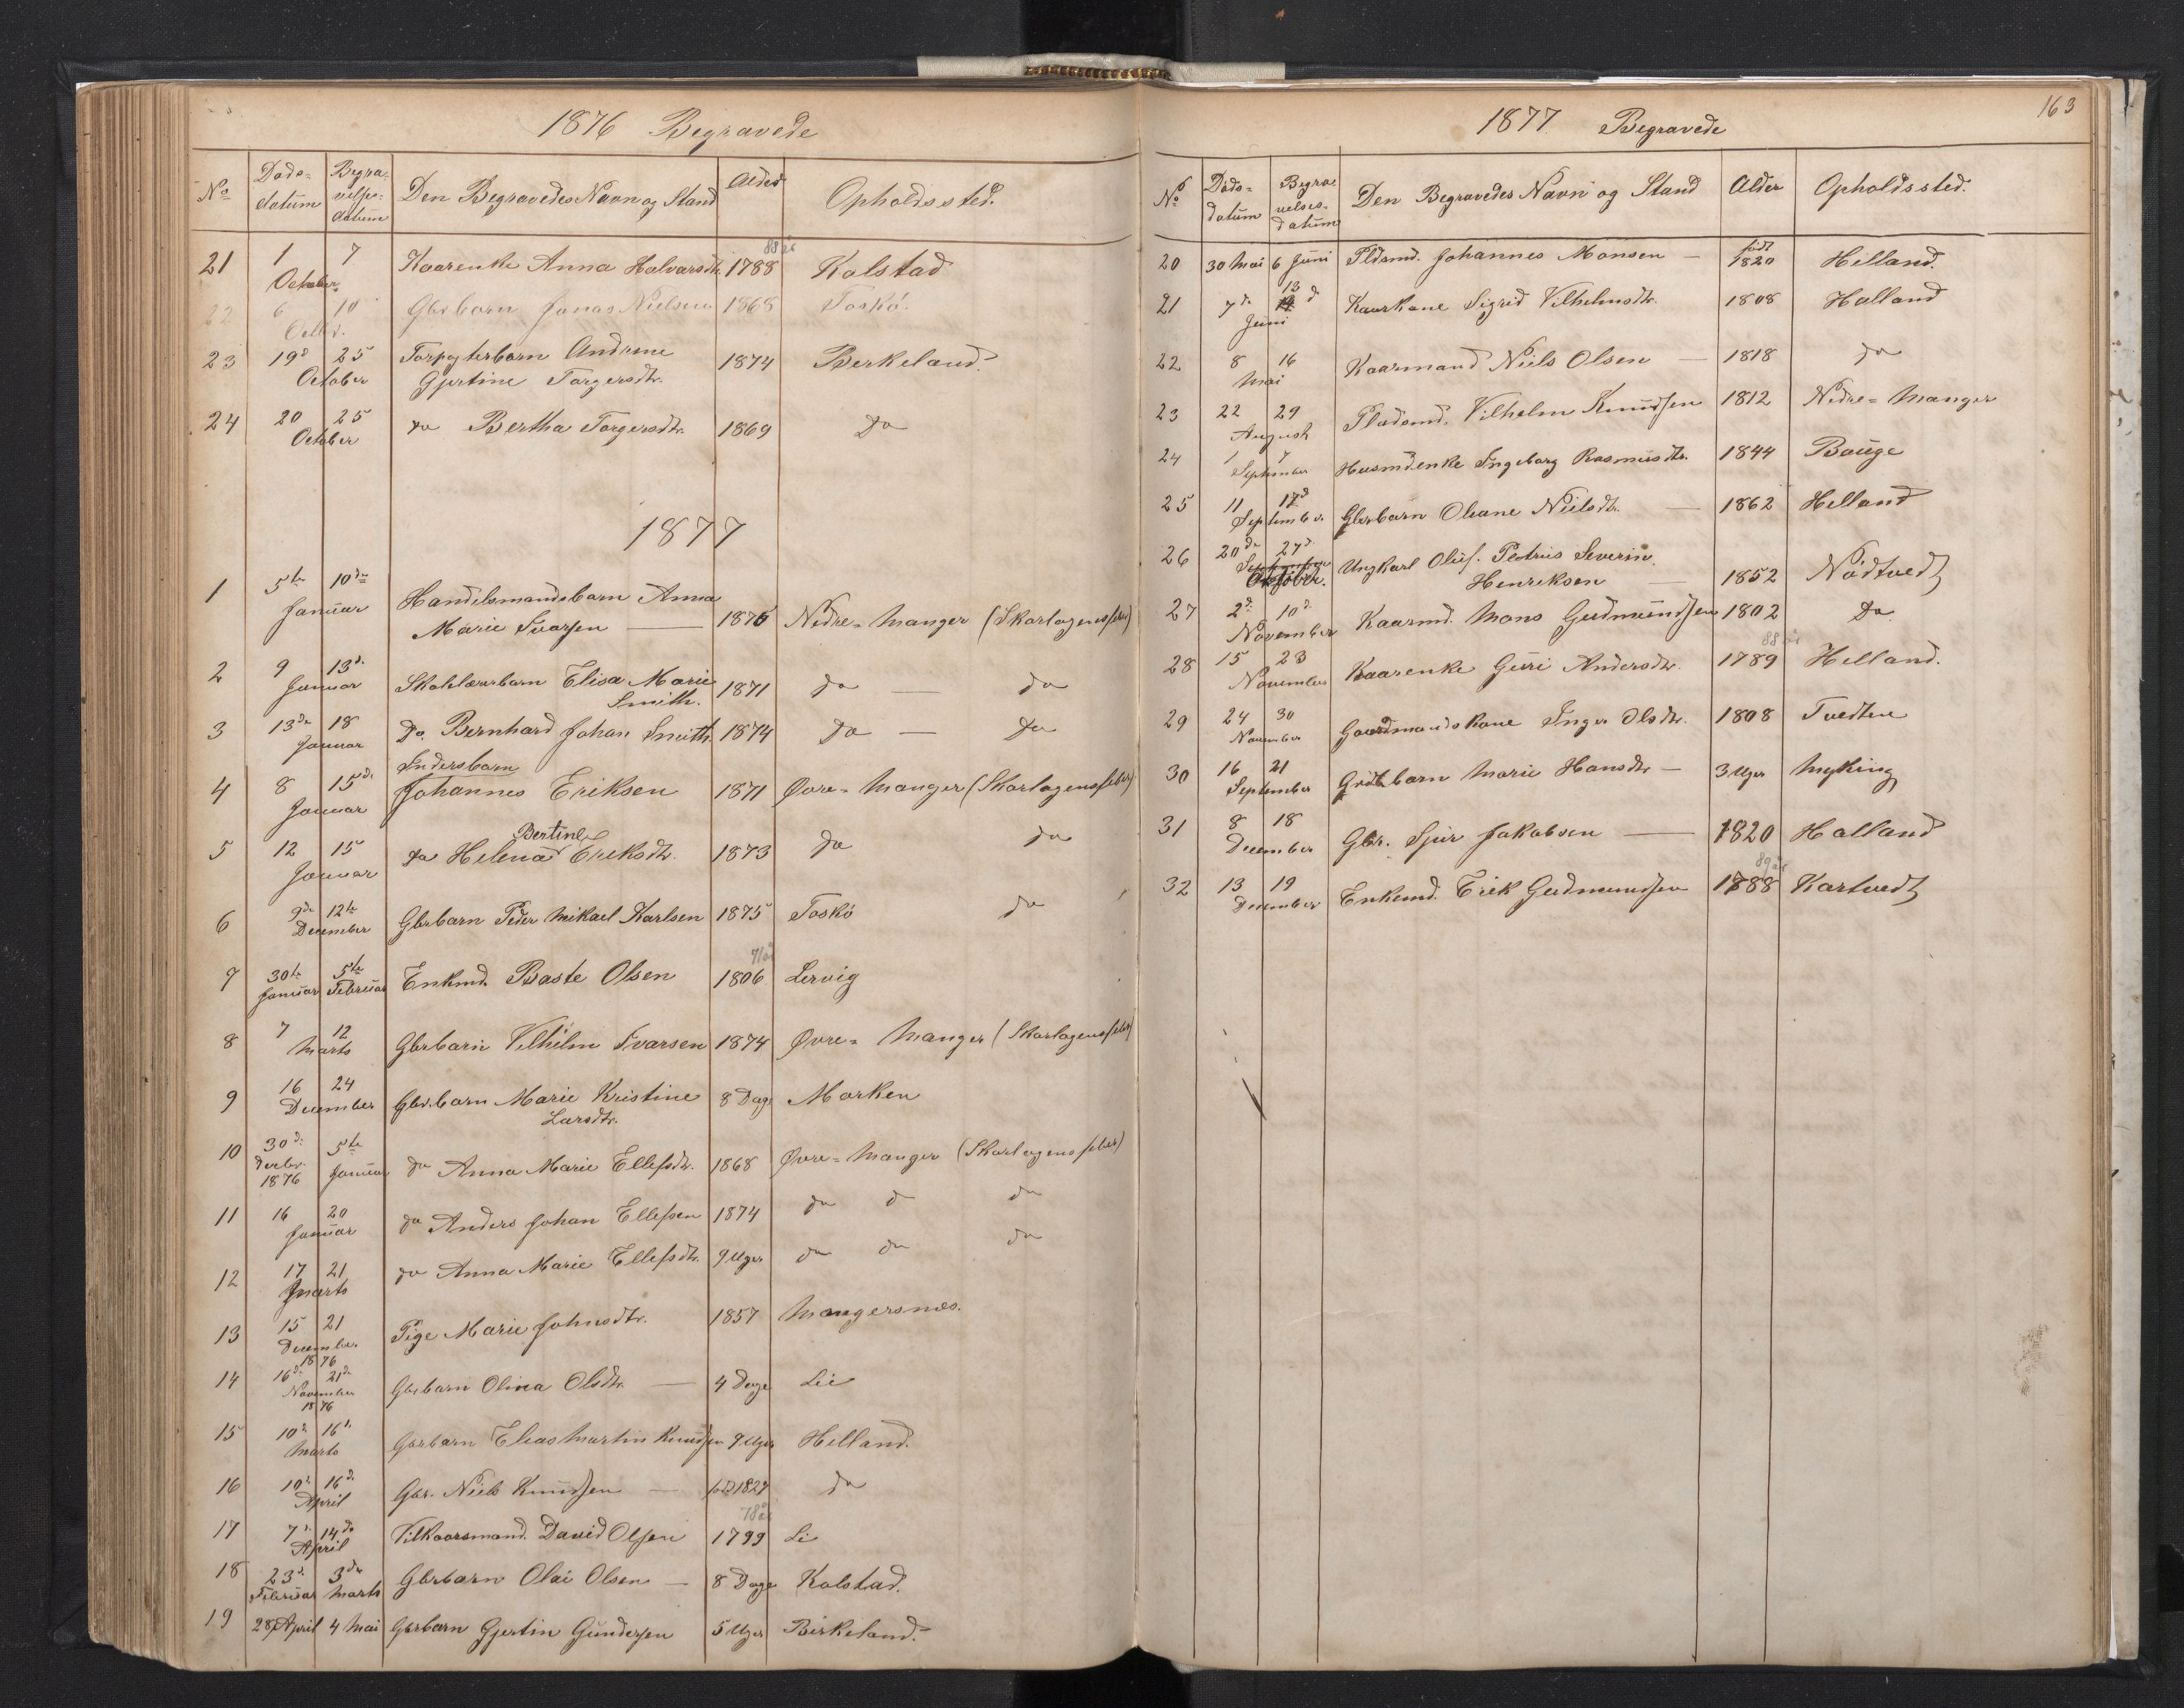 1876 Begravede
No Døds- datum Begra- velses- datum Den Begravedes Navn og Stand Alder Opholdssted.
88 år
21 1 7 Kaarenke Anna Halvarsdtr. 1788 Kolstad
October
22 6 10 Gbrbarn Jonas Nielsen 1868 Toskø.
Octbr.
23 19d 25 Torpagterbarn Andrine 1874 Berkeland.
October Gjertine Torgersdtr.
24 20 25 do Bertha Torgersdtr. 1869 Do
October
1877
1 5te 10de Handelsmandsbarn Anna
Januar Marie Ivarsen 1876 Nedre-Manger (Skarlagensfeber)
2 9 13d. Skolelærerbarn Elisa Marie 1871 do do
Januar Smith.
3 13de 18 Do. Bernhard Johan Smith 1874 Do Do
Januar
Inderstbarn
4 8 15d. Johannes Eriksen 1871 Øvre-Manger (Skarlagensfeber)
Januar
Bertine
5 12 15 do Helena Eriksdtr. 1873 Do Do
Januar
6 9de 12te Gbrbarn Peder Mikael Karlsen 1875 Toskø Do
December
71 år
7 30te 5te Enkemd. Baste Olsen 1806 Lervig
Januar Februar
8 7 12 Gbrbarn Vilhelm Ivarsen 1874 Øvre-Manger (Skarlagensfeber)
Marts
9 16 24 Gbr.barn Marie Kristine 8 Dage Marken
December Larsdtr.
10 30d. 5te do Anna Marie Ellefsdtr. 1868 Øvre-Manger (Skarlagensfeber)
Decbr. 1876 Januar
11 16 20 do Anders Johan Ellefsen 1874 do d do
Januar
12 17 21 do Anna Marie Ellefsdtr. 9 Uger do do do
Marts
13 15 21 Pige Marie Johnsdtr. 1857 Mangersnes.
December 1876
14 16d. 21de Gbrbarn Olina Olsdtr. 4 Dage Lie
November 1876
15 10d. 16d. Gbrbarn Elias Martin Knudsen 9 Uger Helland.
Marts
16 10d. 16d. Gbr. Niels Knudsen fød 1827 do
April
78 år
17 7d. 14de Vilkaarsmand. David Olsen 1799 Li
April
18 23d. 3de Gbrbarn Olai Olsen 8 Dage Kolstad.
Februar Marts
19 28 April 4 Mai Gbrbarn Gjertin Gundersen 5 Uger Birkeland.
163
1877 Begravede
No. Døds- datum Begra- velses- datum Den Begravedes Navn og Stand Alder Opholdssted.
20 30 Mai 6 Juni Pldsmd. Johannes Monsen født 1820 Helland.
21 7de 13 d Kaarkone Sigrid Vilhelmsdtr. 1808 Halland
Juni
22 8 16 Kaarmand Niels Olsen 1818 do
Mai
23 22 29 Pladsmd. Vilhelm Knudsen 1812 Nedre-Manger
August
24 1 7 Husmdenke Ingeborg Rasmusdtr. 1844 Bøuge
September
25 11 17d Gbrbarn Oleane Nielsdtr. 1862 Helland
September
26 20de 27d. Ungkarl Oluf. Petrus Severin
September Henriksen 1852 Nødtvedt
27 2d. 10d. Kaarmd. Mons Gudmundsen 1802 Do.
November
88 år
28 15 23 Kaarenke Guri Andersdtr. 1789 Helland.
November
29 24 30 Gaardmandskone Inger Olsdtr. 1808 Tvedten
November
30 16 21 Gbrbarn Marie Hansdtr 3 Uger Myking
September
31 8 18 Gbr. Sjur Jakobsen 1820 Halland
December
89 år
32 13 19 Enkemd. Erik Gudmundsen 1788 Kartvedt
December